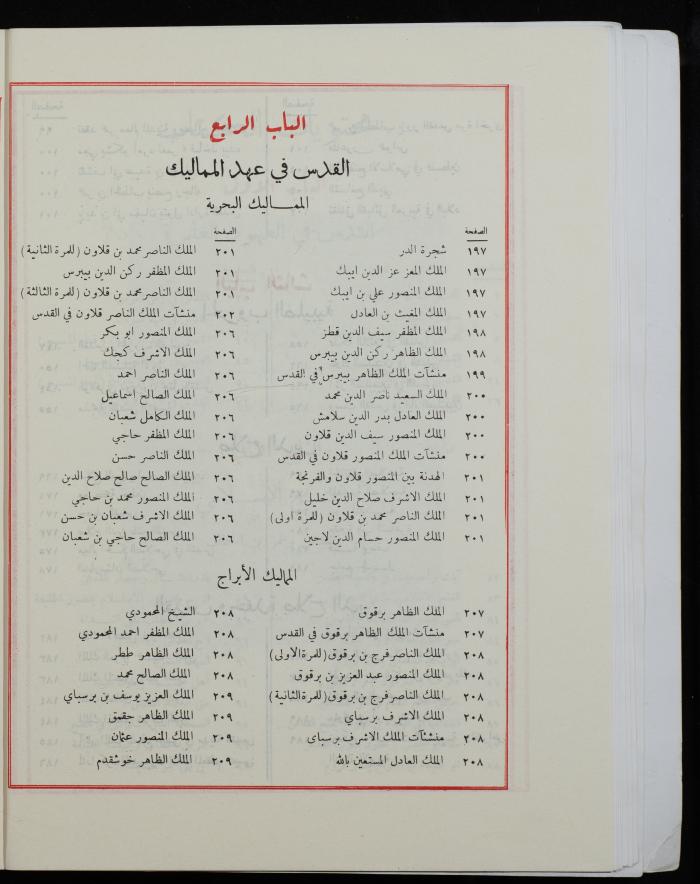 الباب الرابع
القدس في عهد المماليك
الممـــاليك البحرية
الصفحة
١٩٧ شجرة الدر
١٩٧ الملك المعز عز الدين ايبك
١٩٧ الملك المنصور علي بن ايبك
١٩٧ الملك المغيث بن العادل
١٩٨ الملك المظفر سيف الدين قطز
١٩٨ الملك الظاهر ركن الدين بيبرس
١٩٩ منشئات الملك الظاهر بيبرس في القدس
٢٠٠ الملك السعيد ناصر الدين محمد
٢٠٠ الملك العادل بدر الدين سلامش
٢٠٠ الملك المنصور سيف الدين قلاون
٢٠٠ منشآت الملك المنصور قلاون في القدس
٢٠١ الهدنة بين المنصور قلاون والفرنجة
٢٠١ الملك الاشرف صلاح الدين خليل
٢٠١ الملك الناصر محمد بن قلاون (للمرة اولى)
٢٠١ الملك المنصور حسام الدين لاجين
الصفحة
٢٠١ الملك الناصر محمد بن قلاون (للمرة الثانية)
٢٠١ الملك المظفر ركن الدين بيبرس
٢٠١ الملك الناصر محمد بن قلاون (للمرة الثالثة)
٢٠٢ منشآت الملك الناصر قلاون في القدس
٢٠٦ الملك المنصور ابو بكر
٢٠٦ الملك الاشرف كجك
٢٠٦ الملك الناصر احمد
٢٠٦ الملك الصالح اسماعيل
٢٠٦ الملك الكامل شعبان
٢٠٦ الملك المظفر حاجي
٢٠٦ الملك الناصر حسن
٢٠٦ الملك الصالح صالح صلاح الدين
٢٠٦ الملك المنصور محمد بن حاجي
٢٠٦ الملك الاشرف شعبان بن حسن
٢٠٦ الملك الصالح حاجي بن شعبان
المماليك الأبراج
٢٠٧ الملك الظاهر برقوق
٢٠٧ منشآت الملك الظاهر برقوق في القدس
٢٠٨ الملك الناصر فرج بن برقوق (للمرة الاولى)
٢٠٨ الملك المنصور عبد العزيز بن برقوق
٢٠٨ الملك الناصر فرج بن برقوق (للمرة الثانية)
٢٠٨ الملك الاشرف برسباي
٢٠٨ منشئآت الملك الاشرف برسباي
٢٠٨ الملك العادل المستعين بالله
٢٠٨ الشيخ المحمودي
٢٠٨ الملك المظفر احمد المحمودي
٢٠٨ الملك الظاهر ططر
٢٠٨ الملك الصالح محمد
٢٠٩ الملك العزيز يوسف بن برسباي
٢٠٩ الملك الظاهر جقمق
٢٠٩ الملك المنصور عثمان
٢٠٩ الملك الظاهر خوشقدم